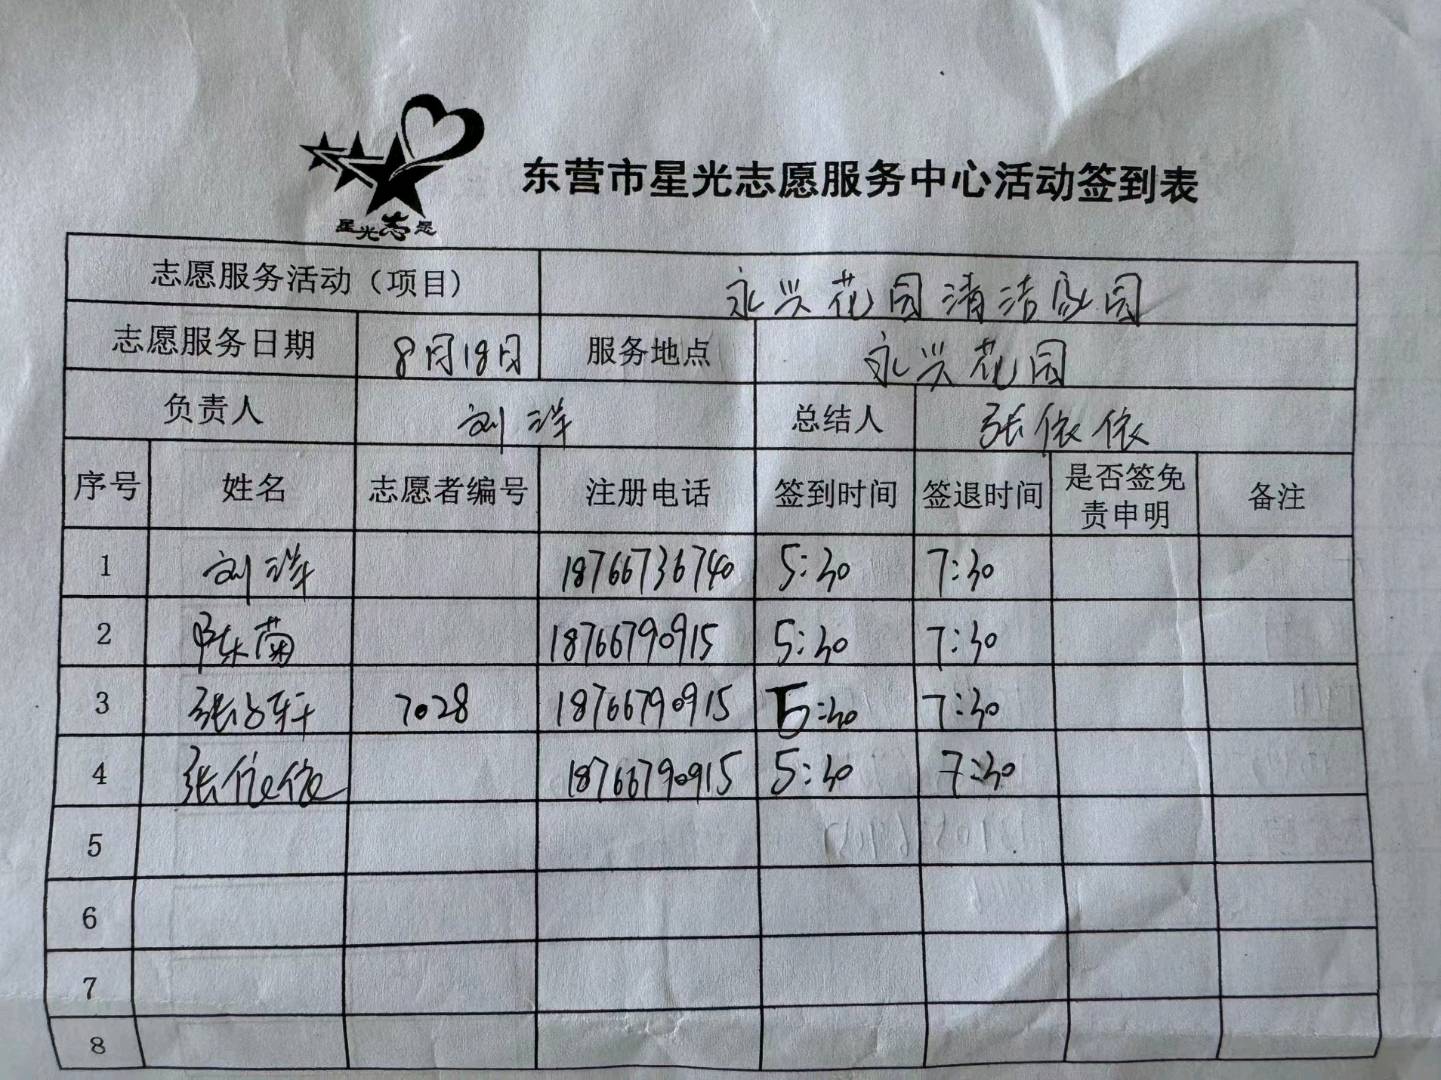 星光志愿
东营市星光志愿服务中心活动签到表
志愿服务活动（项目） 永兴花园清洁家园
志愿服务日期 8月18日 服务地点 永兴花园
负责人 刘洋 总结人 张依依
序号 姓名 志愿者编号 注册电话 签到时间 签退时间 是否签免责申明 备注
1 刘洋 18766736740 5:30 7:30
2 陈菊 18766790915 5:30 7:30
3 7028 18766790915 5:30 7:30
4 张依依 18766790915 5:30 7:30
5
6
7
8